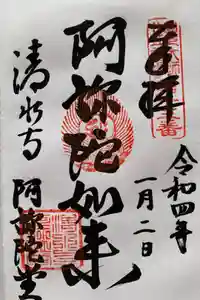 奉拝
令和四年
一月二日
阿弥陀如来
清水寺
阿弥陀堂